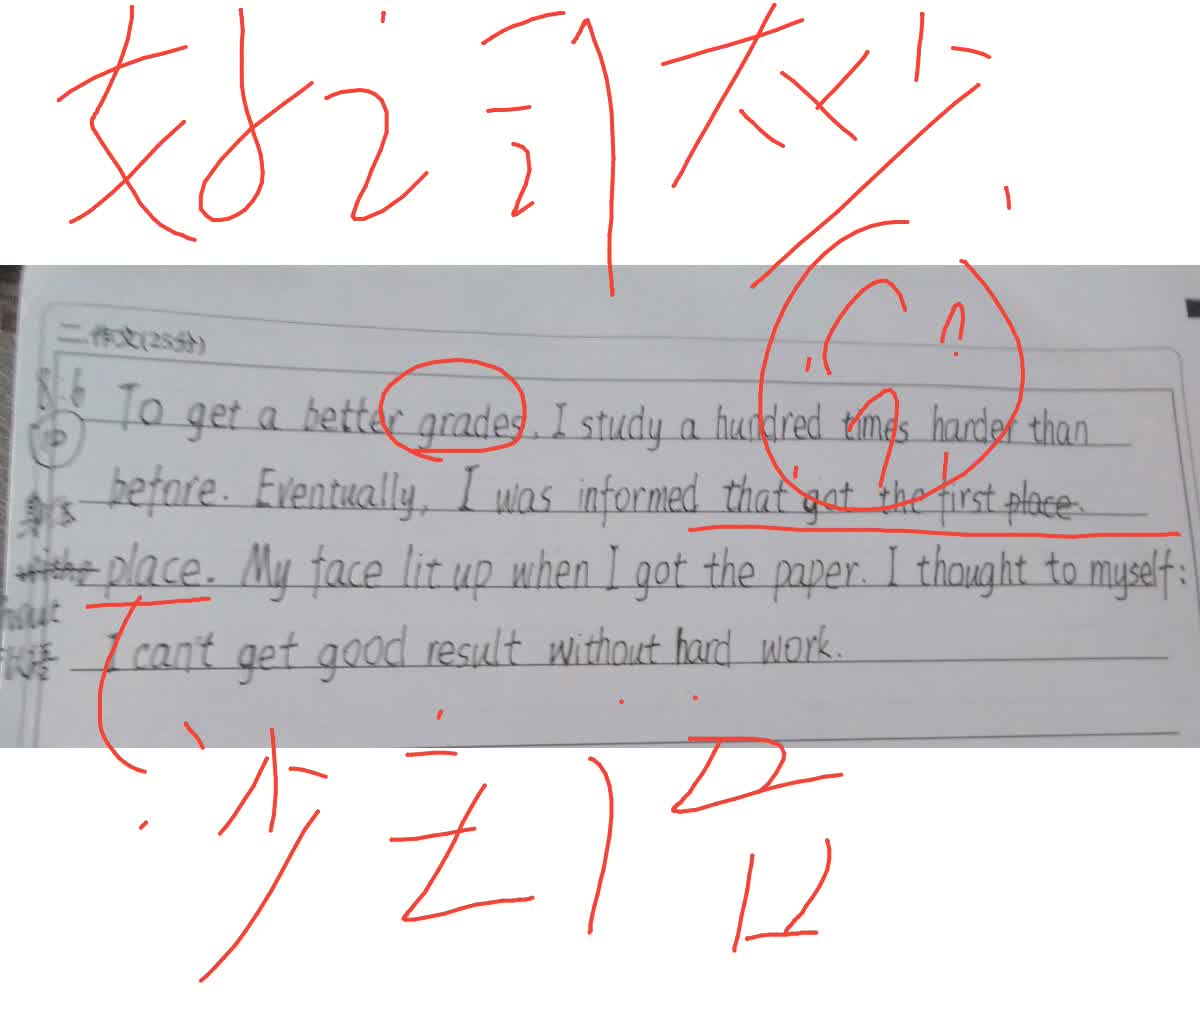 好词太少
二.作文(25分)
To get a better grades, I study a hundred times harder than
before. Eventually, I was informed that got the first place.
place. My face lit up when I got the paper. I thought to myself:
I can't get good result without hard work.
少主语